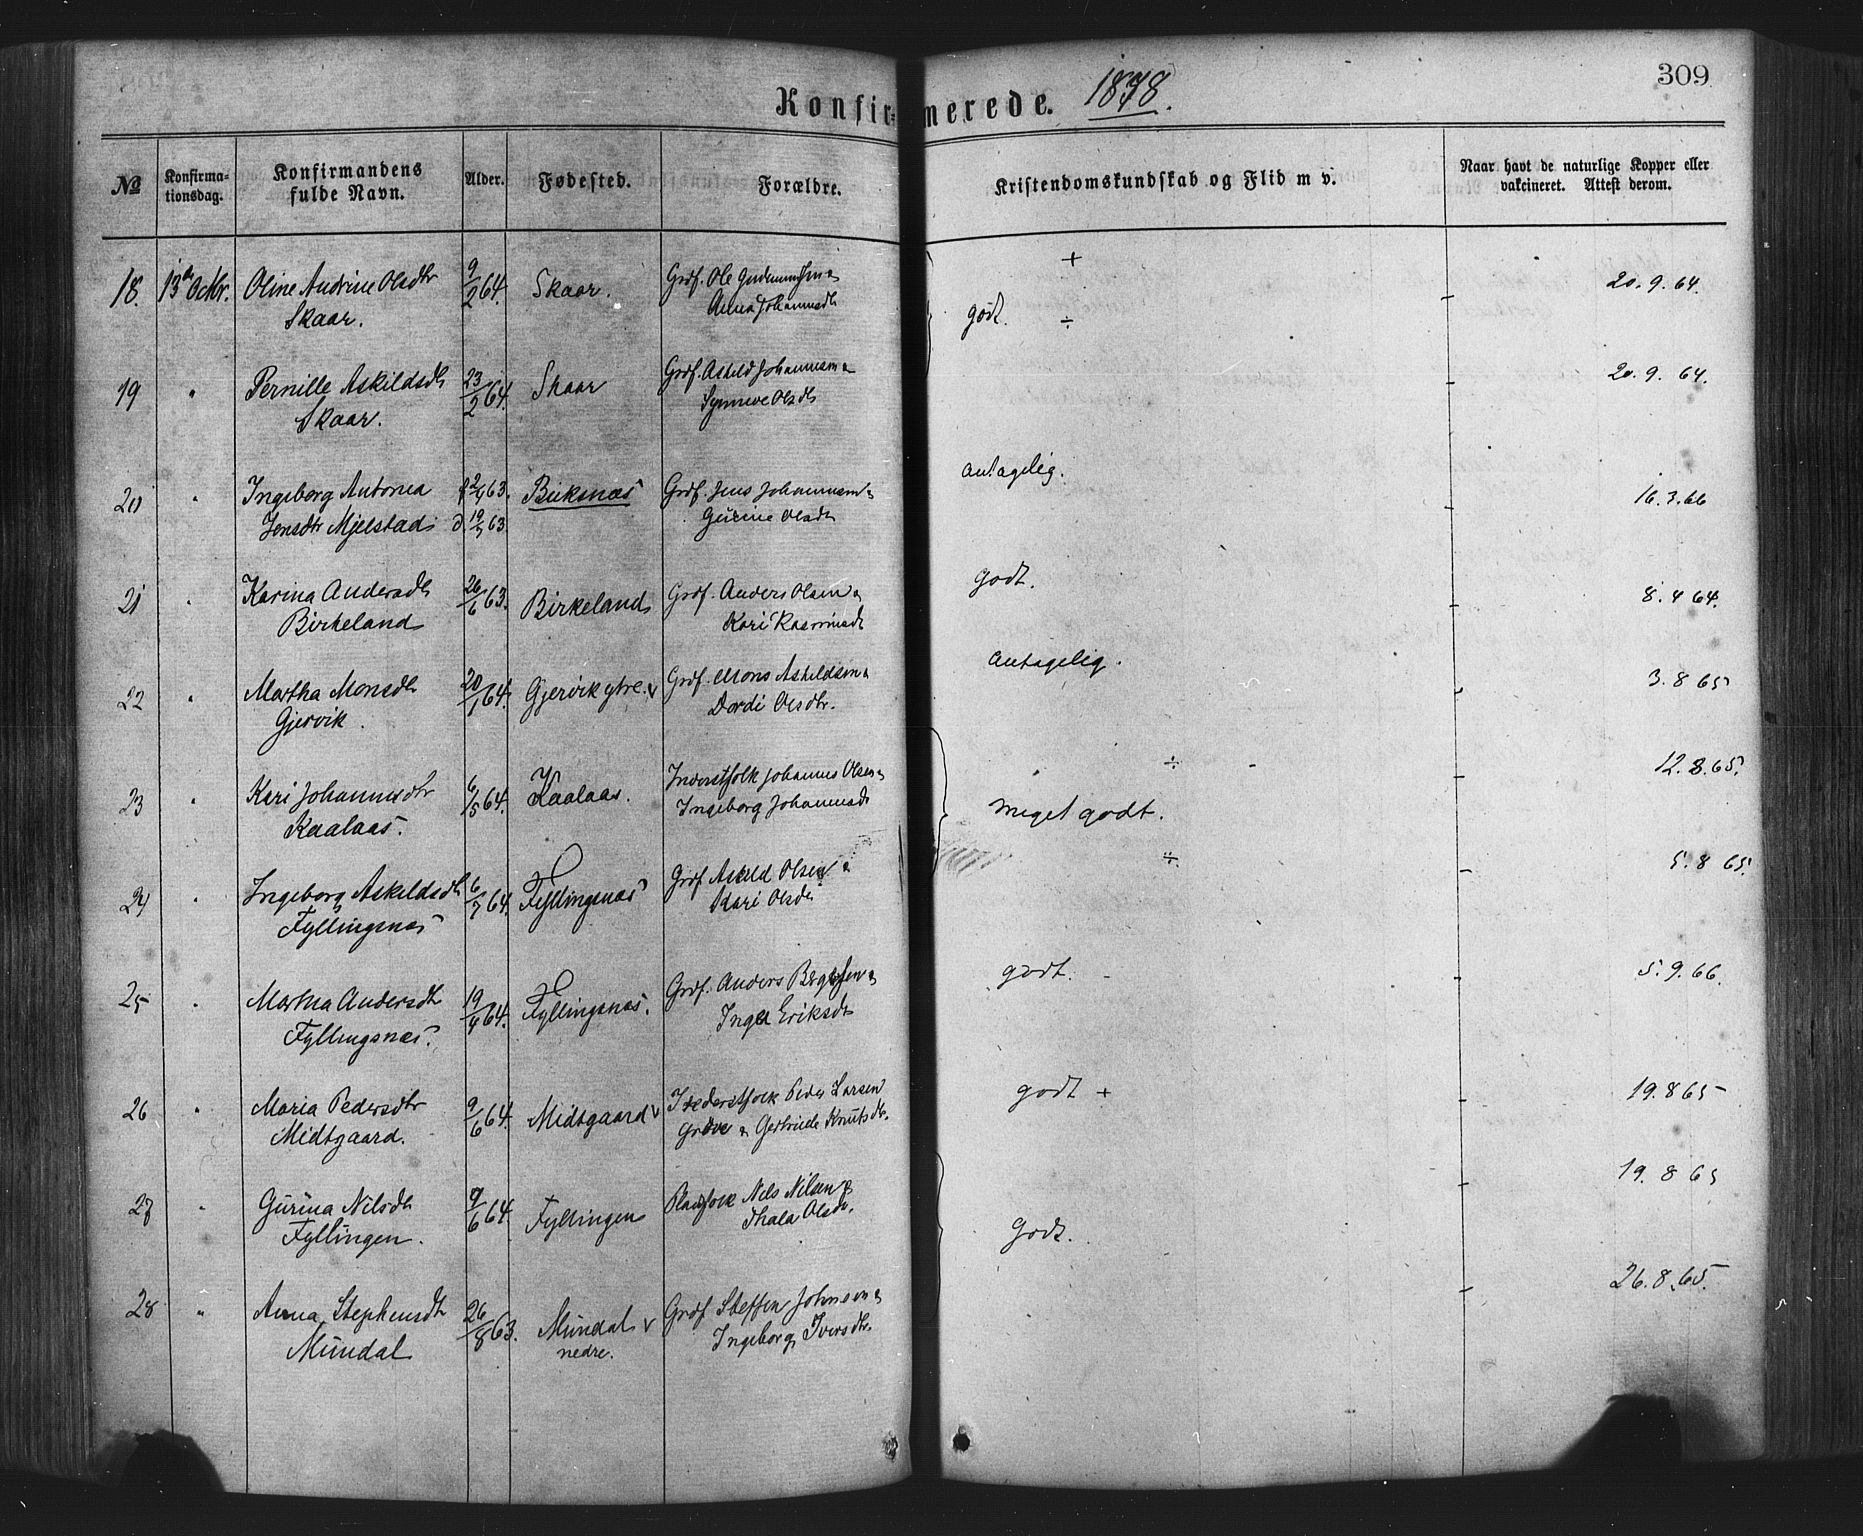 309
Konfirmerede. 1878.
No Konfirmationsdag. Konfirmandens fulde Navn. Alder. Fødested. Forældre. Kristendomskundskab og Flid m v. Naar havt de naturlige Kopper eller vakcineret. Attest derom.
18. 13de Octbr. Oline Andrine Olsdtr 9/2 64. Skaar. Grdf. Ole Gudmundsen & + 20. 9. 64.
Skaar. Anna Johannesdt godt. ÷
19 " Pernille Askildsdtr 23/2 64. Skaar Grdf. Askild Johannesen & 20. 9. 64.
Skaar. Synneve Olsdtr
20 " Ingeborg Antonia f 2/4 63. Birksnæs Grdf. Jens Johannesen & antagelig. 16. 3. 66
Jensdtr Mjelstad d. 19/ 63. Gurine Olsdtr
21 " Karina Andersdtr 26/6 63. Birkeland Grdf. Anders Olsen & godt. 8. 4 64.
Birkeland Kari Rasmusdt
22 " Martha Monsdtr 20/1 64. Gjervik ytre. v Grdf. Mons Askildsen & antagelig. 3. 8 65
Gjervik. Dordi Olsdtr.
23 " Kari Johannesdtr 6/5 64. Kaalaas. Inderstfolk Johannes Olsen & ÷ 12. 8. 65.
Kaalaas. Ingeborg Johannesdt meget godt.
24 " Ingeborg Askildsdtr 6/7 64. Fyllingsnæs Grdf Askild Olsen & ÷ 5. 8 65.
Fyllingsnæs Kari Olsdtr
25 " Martha Andersdtr 19/4 64. Fyllingsnæs. Grdf. Anders & godt. 5. 9. 66.
Fyllingsnæs. Inga Eriksdt
26 " Maria Pedersdtr 9/6 64. Midtgaard v Inderstfolk Peder Larsen godt + 19. 8 65
Midtgaard. & Gertrude Knutsdtr.
27 " Gurina Nilsdtr 9/6 64. Fyllingen Pladsfolk Nils Nilsen & 19. 8 65
Fyllingen. Thala Olsdtr. Godt.
28 " Anna Stephensdtr 26/8 63. Mundal v Grdf Steffen Johnsen & 26. 8. 65.
Mundal nedre. Ingeborg Iversdtr.